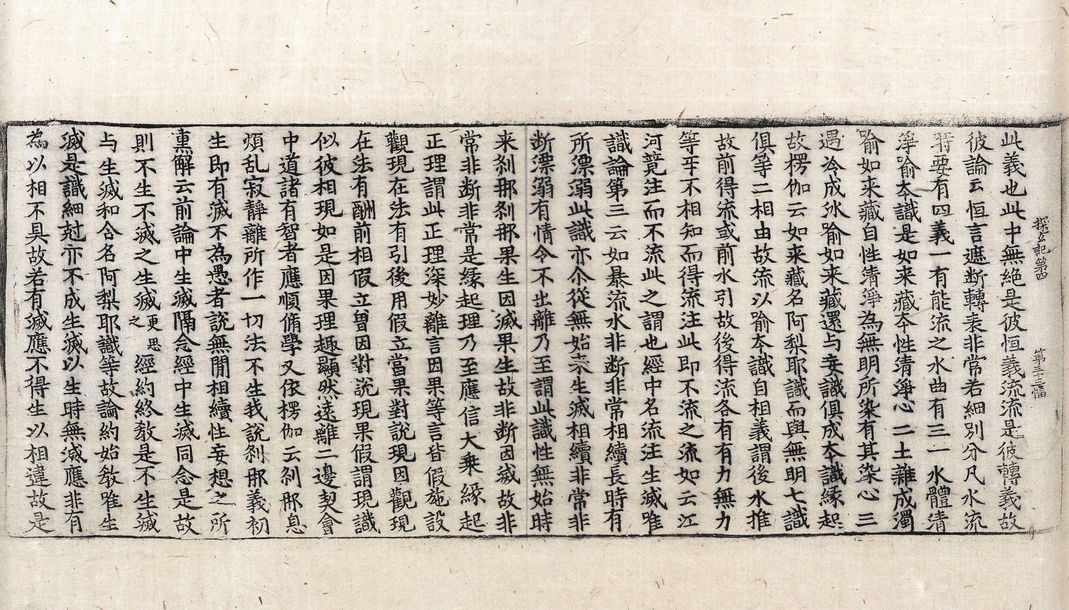 此義也此中無絶是彼恒義流流是彼轉義故
彼論云恒言遮断轉表非常若細別分凡水流
時要有四義一有能流之水曲有三一水體清
淨喻夲識是如来藏夲性清淨心二土雜成濁
喻如来藏自性清淨為無明所染有其染心三
遇冷成氷喻如来藏還与妄識俱成夲識縁起
故楞伽云如来藏名阿梨耶識而與無明七識
俱等二相由故流以喻夲識自相義謂後水推
故前得流或前水引故後得流各有有力無力
等乎不相知而得流注此即不流之流如云江
河竸注而不流此之謂也經中名流注生滅唯
識論第三云如暴流水非断非常相續長時有
所漂溺此識亦尒從無始来生滅相續非常非
断漂溺有情令不出離乃至謂此識性無始時
来刹那刹那果生因滅果生故非断因滅故非
常非断非常是縁起理乃至應信大乗縁起
正理謂此正理深妙離言因果等言皆假施設
觀現在法有引後用假立當果對說現因觀現
在法有酬前相假立曽因對說現果假謂現識
似彼相現如是因果理趣顯然逺離二邊契會
中道諸有智者應順脩學又依楞伽云刹那息
煩乱寂靜離所作一切法不生我說刹那義初
生即有滅不為愚者說無間相續性妄想之所
熏解云前論中生滅隔念經中生滅同念是故
則不生不滅之生滅更思之經約終教是不生滅
与生滅和合名阿梨耶識等故論約始教唯生
滅是識細尅亦不成生滅以生時無滅應非有
為以相不具故若有滅應不得生以相違故是
探玄記第四
第三十二幅